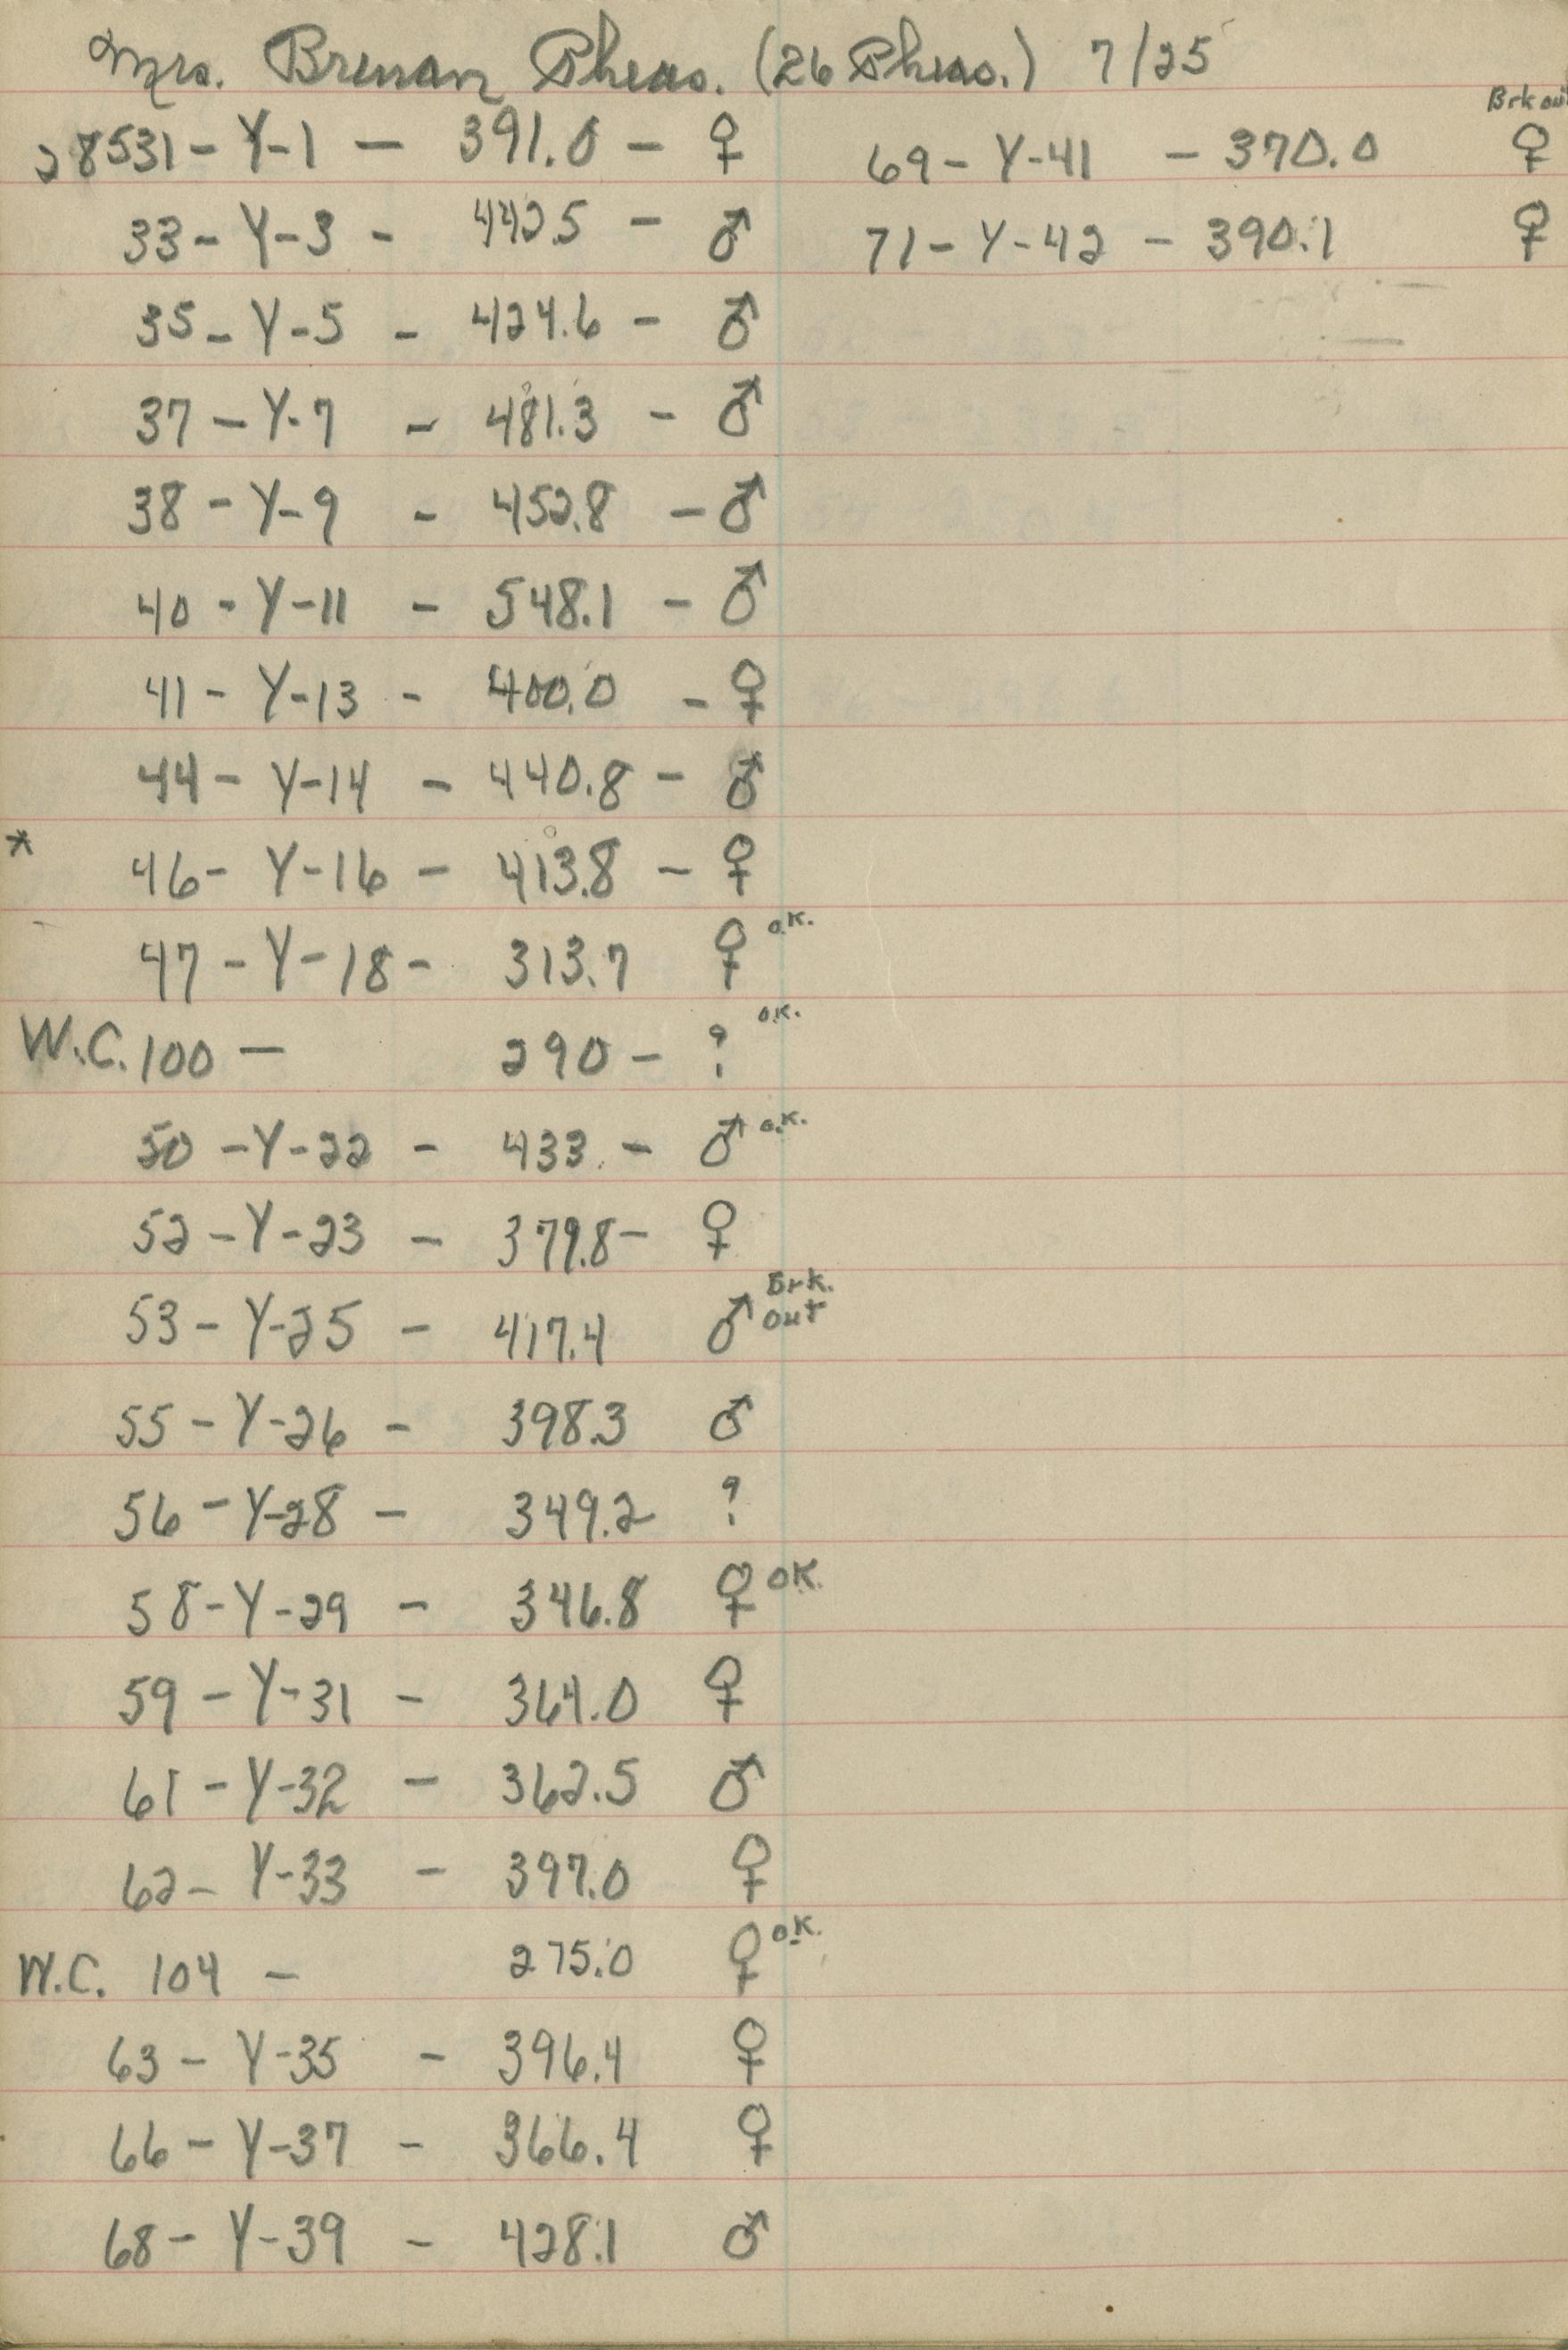 Mrs. Brenan Pheas. (26 Pheas.) 7/25
28531 - Y-1 - 391.0 - ♀
33 - Y-3 - 442.5 - ♂
35 - Y-5 - 424.6 - ♂
37 - Y-7 - 481.3 - ♂
38 - Y-9 - 452.8 - ♂
40 - Y-11 - 548.1 - ♂
41 - Y-13 - 400.0 - ♀
44 - Y-14 - 440.8 - ♂
* 46 - Y-16 - 413.8 - ♀
47 - Y-18 - 313.7 ♀ o.K.
W.C. 100 - 290 - ? o.K.
50 - Y-22 - 433. - ♂ o.K.
52 - Y-23 - 379.8 - ♀
53 - Y-25 - 417.4 ♂ Brk. out
55 - Y-26 - 398.3 ♂
56 - Y-28 - 349.2 ?
58 - Y-29 - 346.8 ♀ OK.
59 - Y-31 - 364.0 ♀
61 - Y-32 - 362.5 ♂
62 - Y-33 - 397.0 ♀
W.C. 104 - 275.0 ♀ o.K.
63 - Y-35 - 396.4 ♀
66 - Y-37 - 366.4 ♀
68 - Y-39 - 428.1 ♂
69 - Y-41 - 370.0 ♀ Brk out
71 - Y-42 - 390.1 ♀